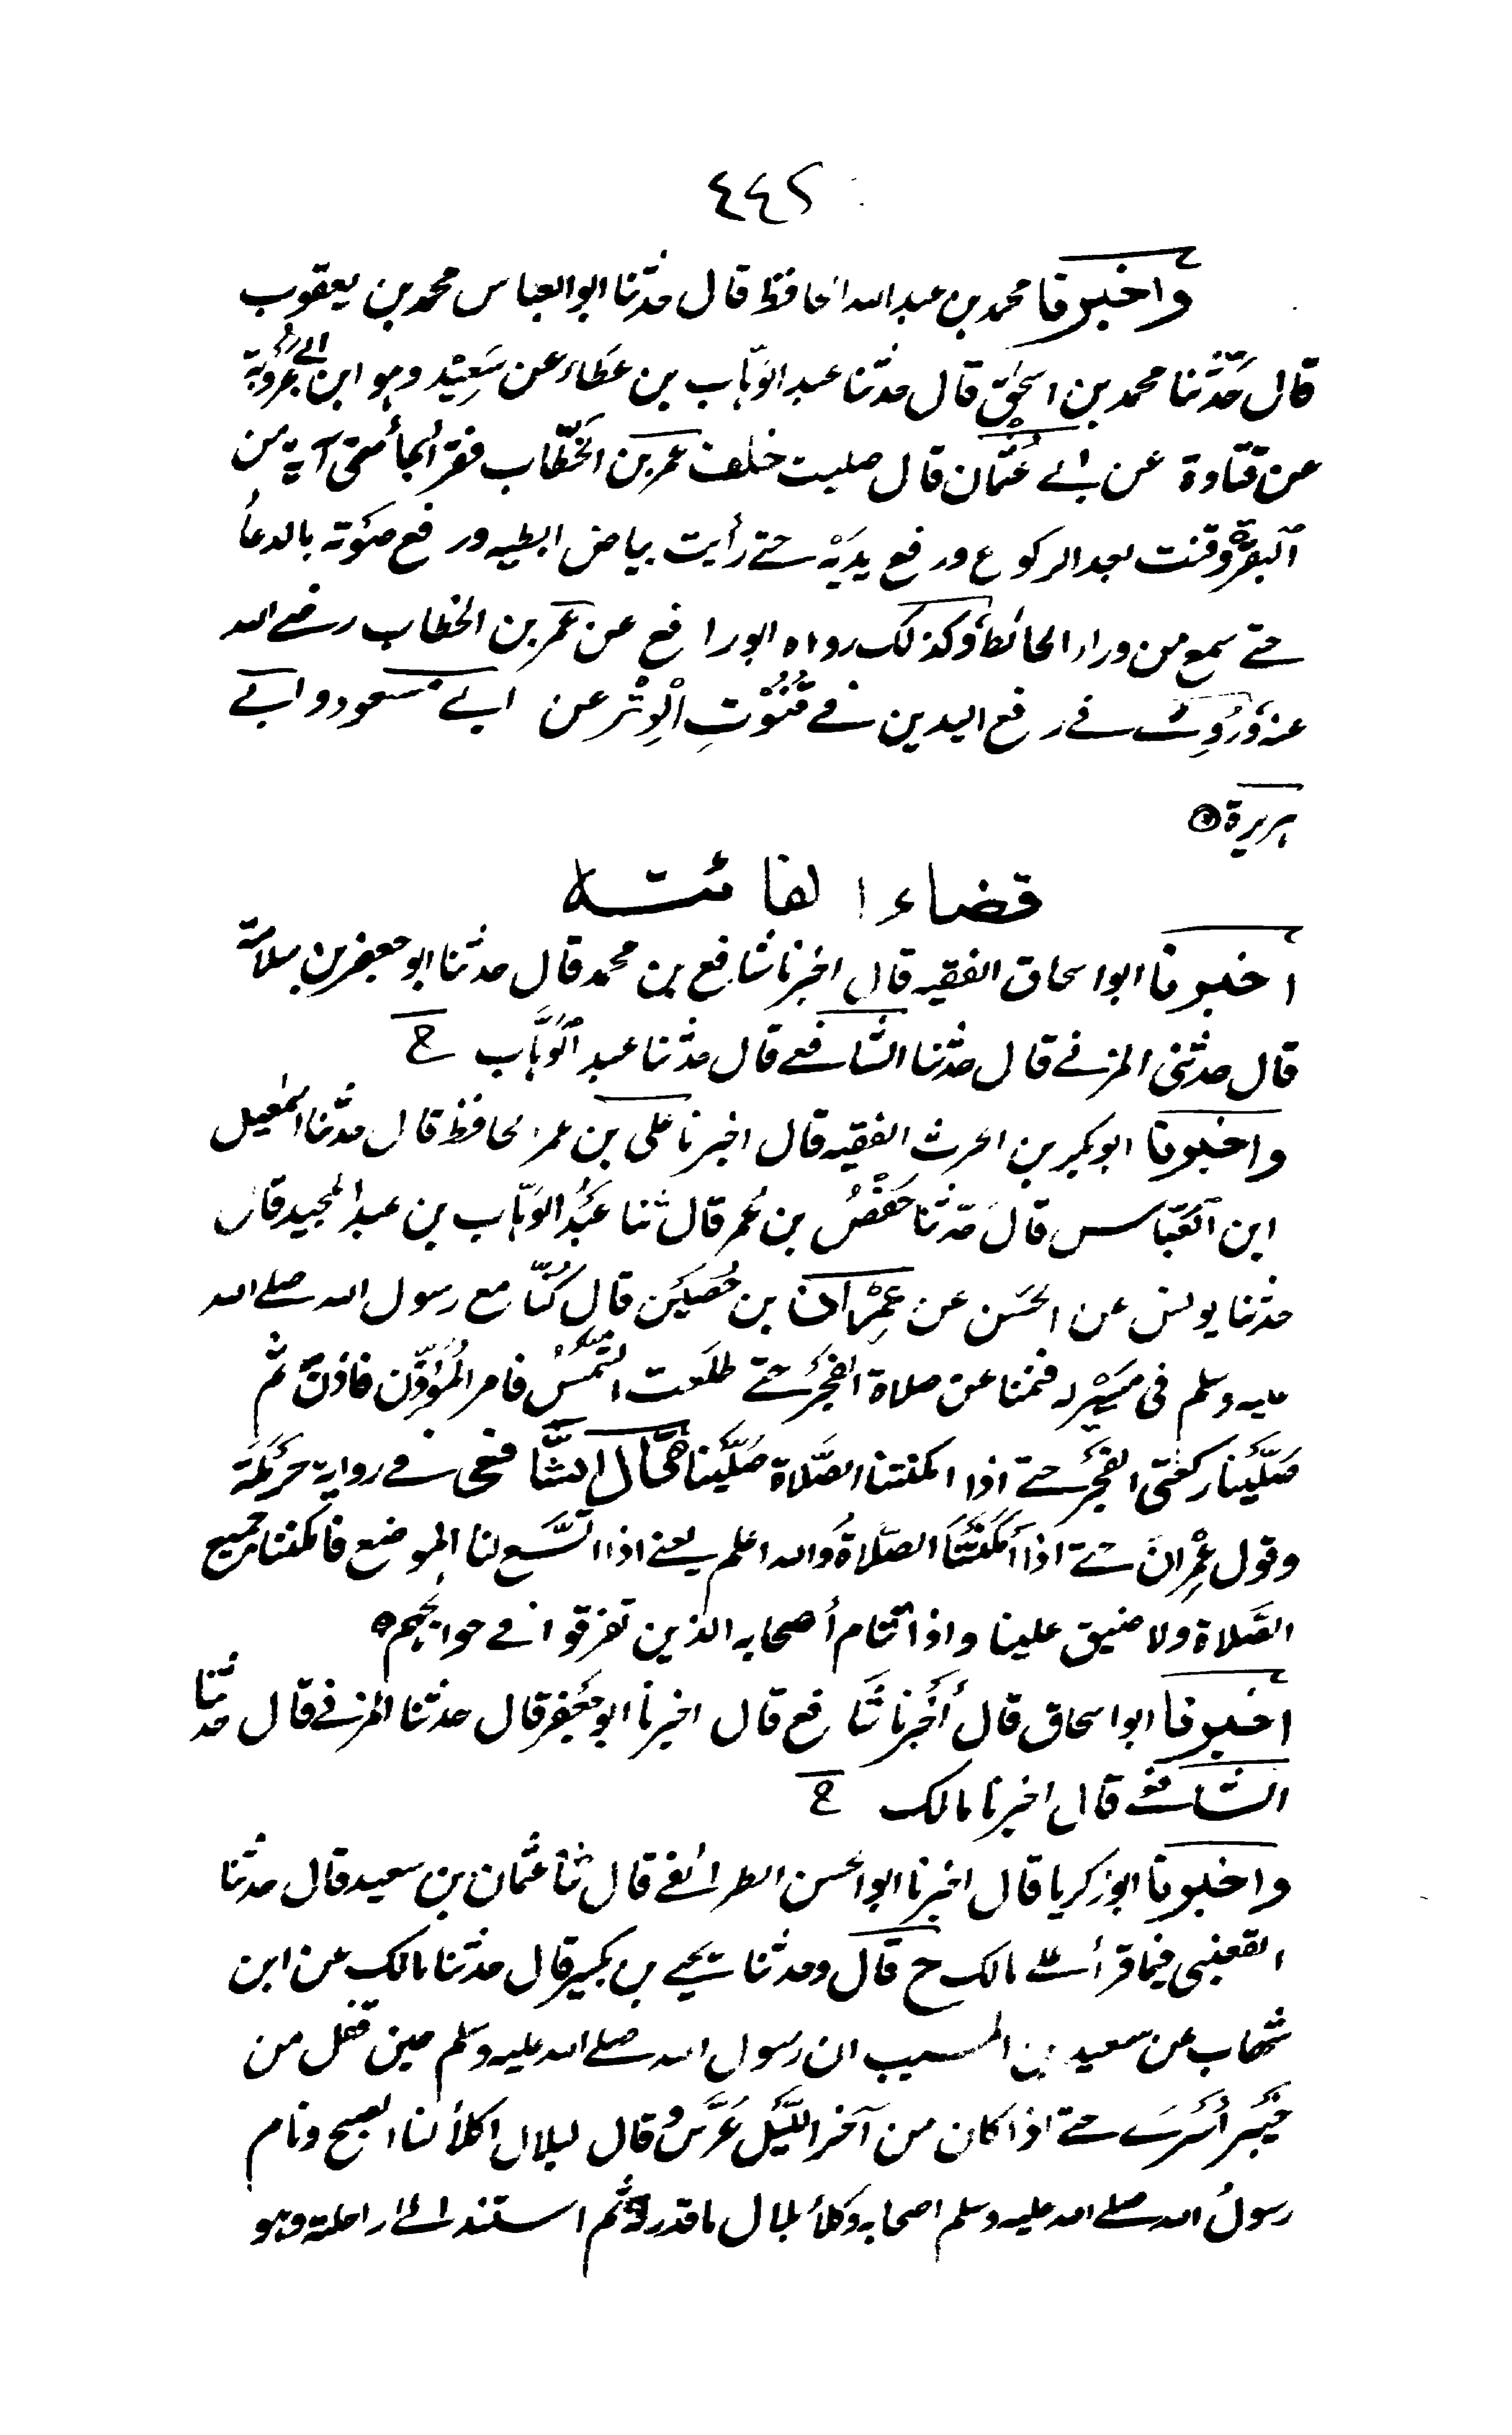 ٤٤٢
وأخبرنا محمد بن عبد الله الحافظ قال حدثنا ابو العباس محمد بن يعقوب
قال حَدَّثنا محمد بن اسحٰق قال حدثنا عبد الوَهّاب بن عَطَاء عن سَعِيْد وهو ابن ابي عَرُوْبَة
عن قتادة عن ابي عُثْمان قال صليت خلف عمر بن الخَطّاب فقرأ ثمانين آية من
البقرة وقنت بعد الركوع ورفع يديَه حتى رأيت بياض ابطيه ورفع صَوْته بالدعاء
حتى سمع من وراء الحائط وكذلك رواه ابو رافع عن عمر بن الخطاب رضي الله
عنه ورُوِيَ في رفع اليدين في قُنُوْتِ الْوِتْر عن ابي مسعود وابي
هريرة
قضاء الفائتة
أخبرنا ابو اسحاق الفقيه قال اخبرنا شافع بن محمد قال حدثنا ابو جعفر بن سلامة
قال حدثنى المزني قال حدثنا الشافعي قال حدثنا عبد الوَهَّاب ح
واخبرنا ابو بكر بن الحرث الفقيه قال اخبرنا على بن عمر الحافظ قال حدثنا اسمٰعيل
ابن العَبّاس قال حَدثنا حَفْصُ بن عُمر قال ثنا عَبْدُ الوَهّاب بن عبد المجيد قال
حدثنا يونس عن الحسَن عن عِمْرَان بن حُصَيْن قال كُنّا مع رسول الله صلى الله
عليه وسلم فى مَسِيْر له فنمنا عن صلاة الفجر حتى طلَعت الشَّمْسُ فامر المُؤذِّن فاذن ثم
صَلَّيْنا ركعتى الفَجْر حتى اذا امكنتنا الصَّلاة صَلَّيْنا قال الشَّافعى في رواية حَرْمَلَة
وقول عِمْرانَ حتى اذا أَمْكَنَتْنَا الصَّلَاةُ والله اعلم يعني اذا اتَّسَع لنا الموضع فامكننا جميع
الصَّلاة ولا ضيق علينا واذا تتام أصحابه الذين تفرقوا في حوايجهم
أخبرنا ابو اسحاق قال أَخْبَرنا شَافع قال اخبرنا ابو جَعْفر قال حدثنا المزني قال حدثنا
الشافعي قال اخبرنا مالك ح
واخبرنا ابو زكريا قال اخبرنا ابو الحسن الطرائفي قال ثنا عثمان بن سعيد قال حدثنا
القعنبى فيما قرأ على مالك ح قال وحدثنا يحيى بن بكير قال حدثنا مالك عن ابن
شهاب عن سعيد بن المسيب ان رسول الله صلى الله عليه وسلم حين قفل من
خَيْبَر أَسْرَى حتى اذا كان من آخر اللَّيْل عَرَّسَ وقال لبلال اكلأ لنا الصبح ونام
رسولُ الله صلى الله عليه وسلم اصحابه وكلأ بلال ما قدر له ثُم استند الى راحلته وهو